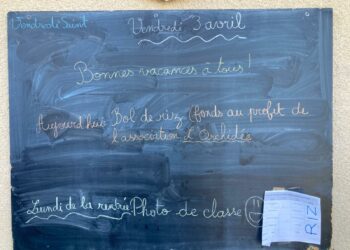 Vendredi Saint
Vendredi 3 avril
Bonnes vacances à tous !
Aujourd'hui Bol de riz (fonds au profit de
l'association L'Orchidée
Lundi de la rentrée Photo de classe
RIZ